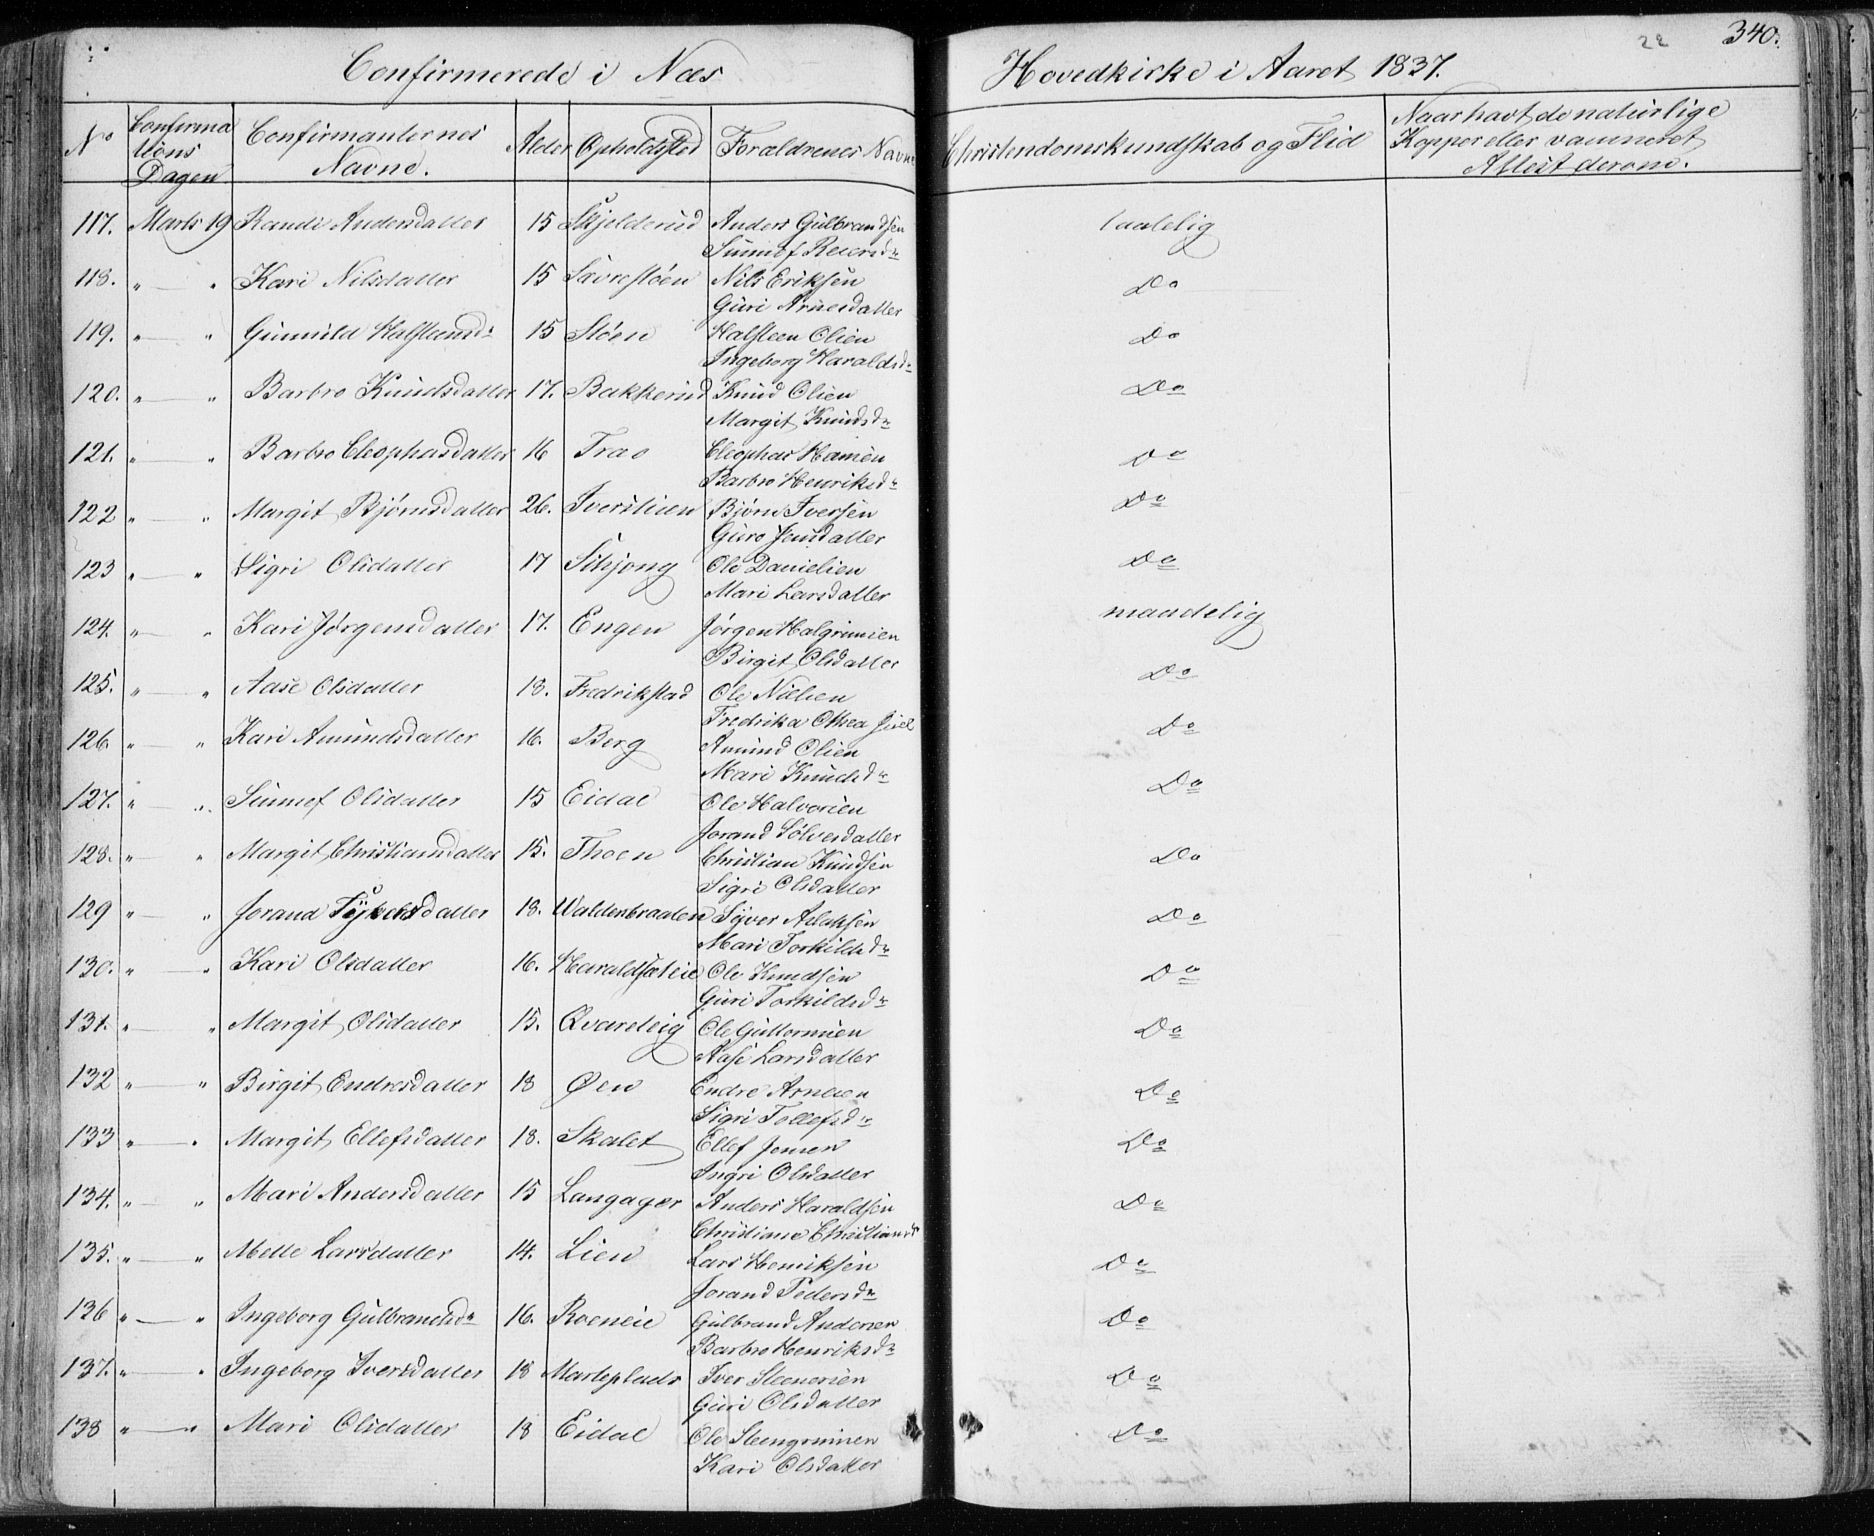 340.
Confirmerede i Næs Hovedkirke i Aaret 1837.
No Confirmations Dagen Confirmanternes Navne. Alder Opholdsted Forældrenes Navne Christendomskundskab og Flid Naar havt de naturlige Kopper eller vaccineret Attest derom.
117. Marts 19 Randi Andersdatter 15 Skjelderud Anders Gulbrandsen taalelig
Sunnef Reiersdr
118. " — " Kari Nilsdatter 15 Sævrestøen Nils Eriksen Do
Guri Arnesdatter
119. " — " Gunnild Halsteensdr 15 Støen Halsteen Olsen Do
Ingeborg Haraldsdr
120. " — " Barbro Knudsdatter 17. Bakkerud Knud Olsen Do
Margit Knudsdr
121. " — " Barbro Cleophasdatter 16 Trao Cleophas Hansen Do
Barbro Henriksdr
122 " — " Margit Bjørnsdatter 26. Iverslien Bjørn Iversen Do
Guro Jensdatter
123 " — " Sigri Olsdatter 17 Ole Danielsen Do
Mari Larsdatter
124. " — " Kari Jørgensdatter 17. Engen Jørgen Halgrimsen maadelig
Birgit Olsdatter
125. " — " Aase Olsdatter 18. Fredrikstad Ole Nielsen Do
Fredrika Othea Juel
126 " — " Kari Amundsdatter 16. Berg Amund Olsen Do
Mari Knudsdr
127. " — " Sunnef Olsdatter 15 Eidal Ole Halvorsen Do
Jorand Sølvesdatter
128. " — " Margit Christiansdatter 15. Thoen Christian Knudsen Do
Sigri Olsdatter
129 " — " Jorand datter 18. Waldersbraaten Syver Aslaksen Do
Mari Torkildsdr
130. " — " Kari Olsdatter 16. Haraldsæteie Ole Knudsen Do
Guri Torkildsdr
131. " — " Margit Olsdatter 15. Qvareteig Ole Guttormsen Do
Aase Larsdatter
132 " — " Birgit Endresdatter 18 Øen Endre Arnesen Do
Sigri Tollefsdr
133 " — " Margit Ellefsdatter 18. Skalet Ellef Jensen Do
Ingri Olsdatter
134. " — " Mari Andersdatter 15 Langager Anders Haraldsen Do
Christiane Christiansdr
135. " — " Mette Larsdatter 14. Lien Lars Henriksen Do
Jorand Pedersdr
136 " — " Ingeborg Gulbrandsdr 16. Roeneie Gulbrand Andersen Do
Barbro Henriksdr
137. " — " Ingeborg Iversdatter 18 Marteplads Iver Steenersen Do
Guri Olsdatter
138 " — " Mari Olsdatter 18 Eidal Ole Steengrimsen Do
Kari Olsdatter